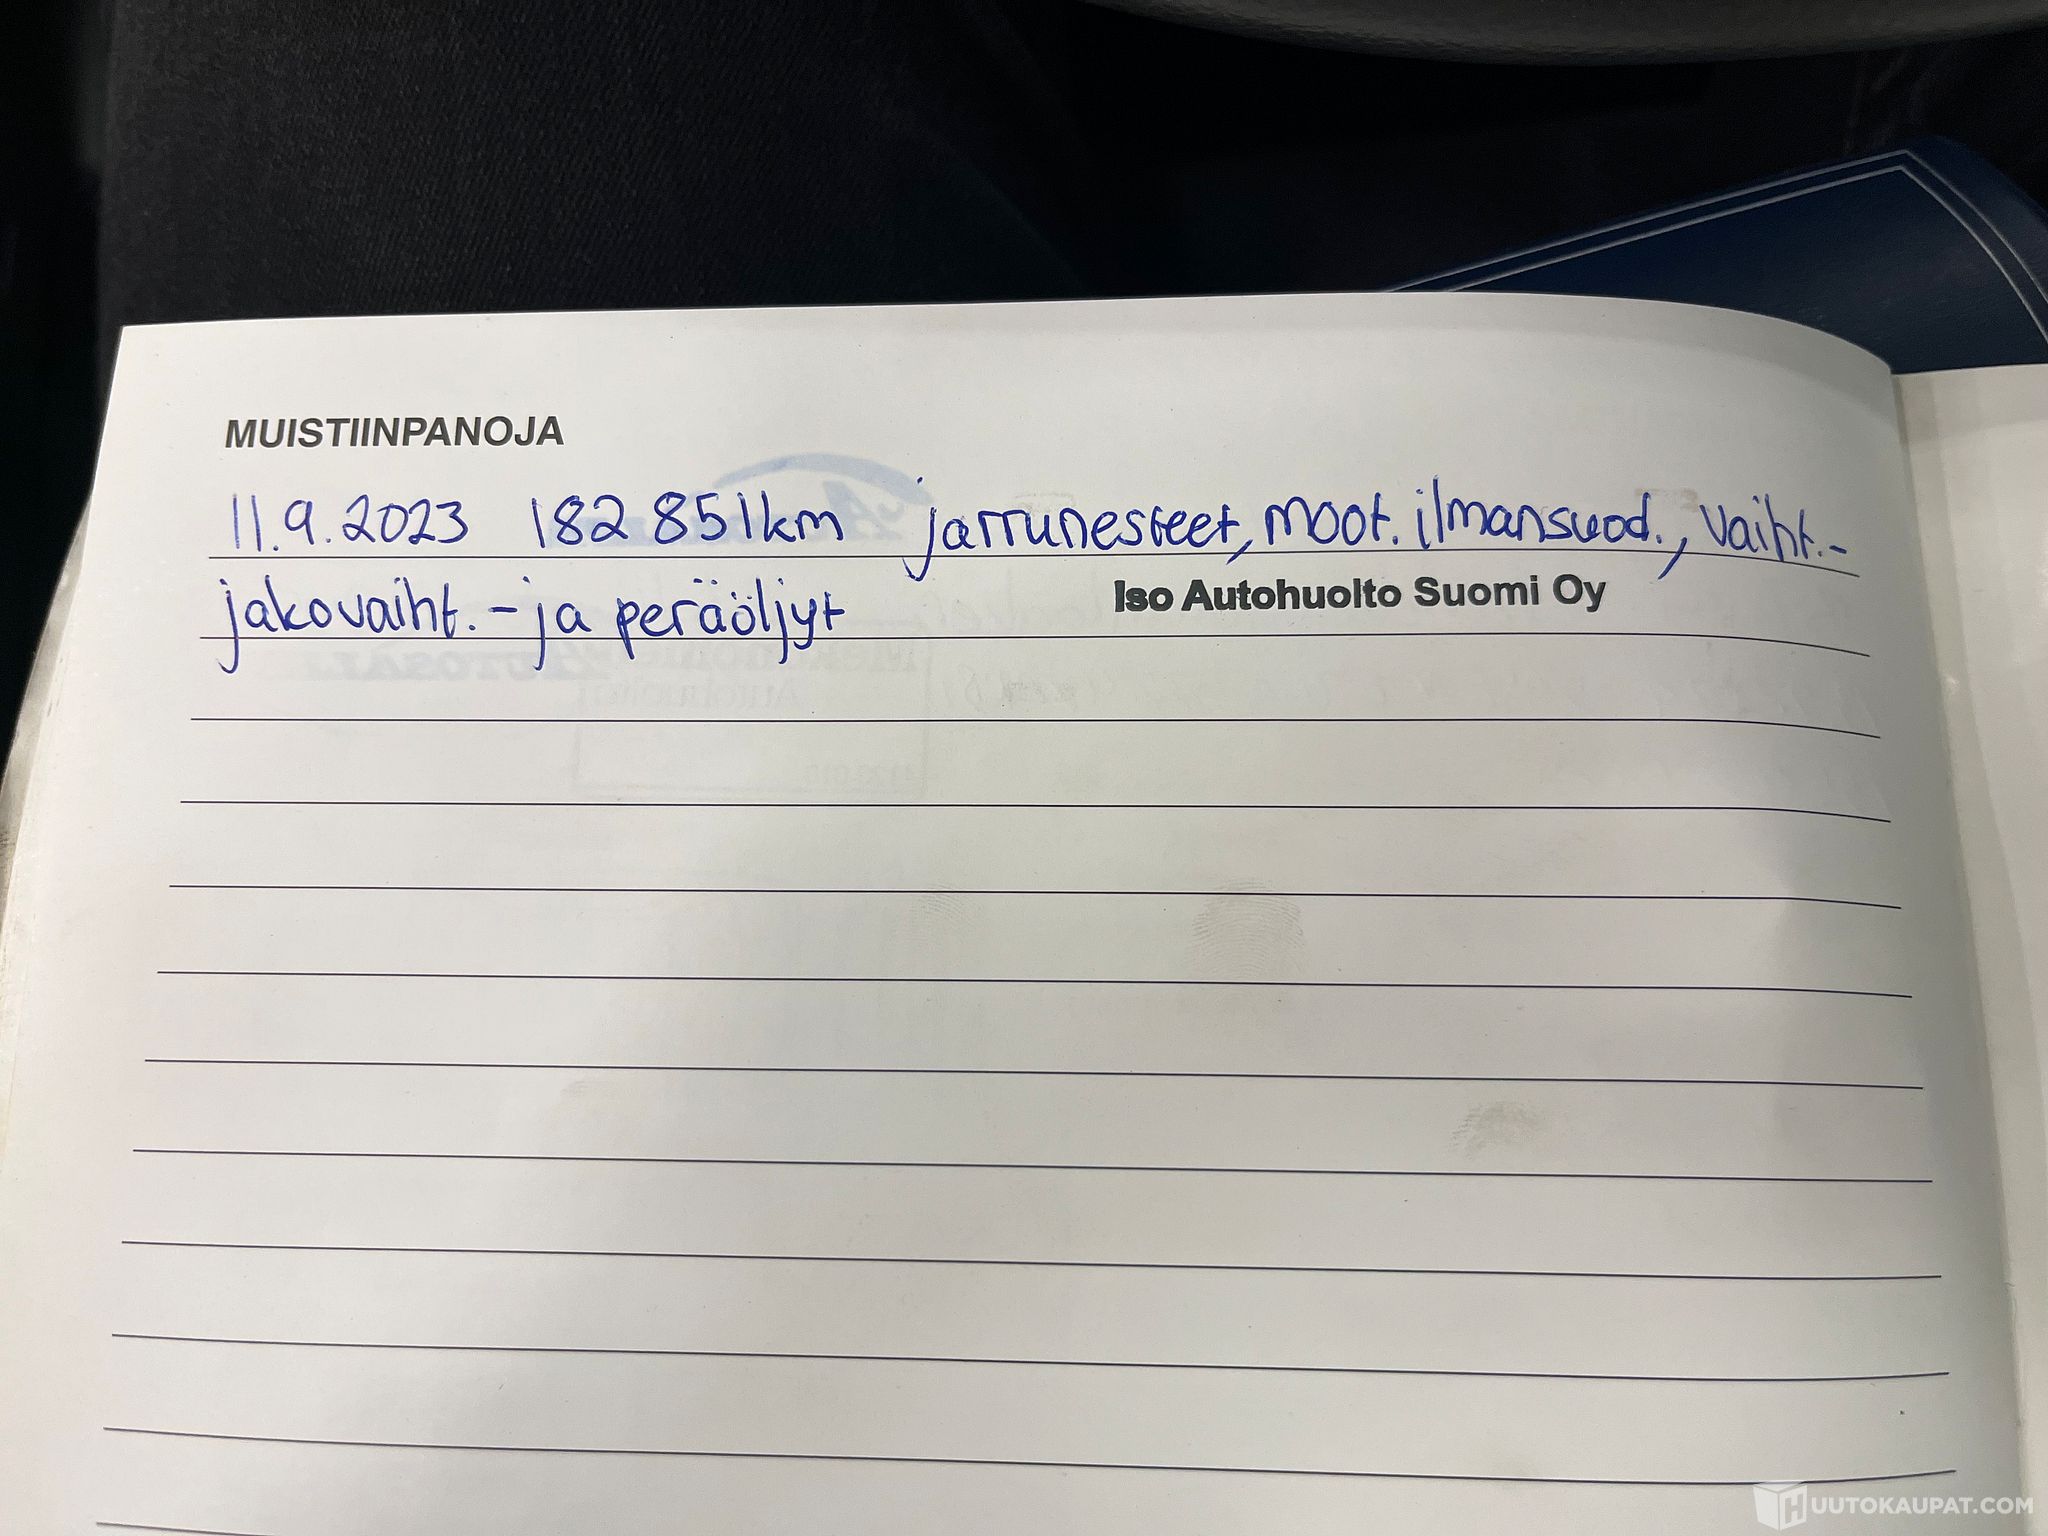 MUISTIINPANOJA
11.9.2023 182 851km jarrunesteet, moot. ilmansuod., vaiht.-
jakovaiht.- ja peräöljyt
Iso Autohuolto Suomi Oy
HUUTOKAUPAT.COM